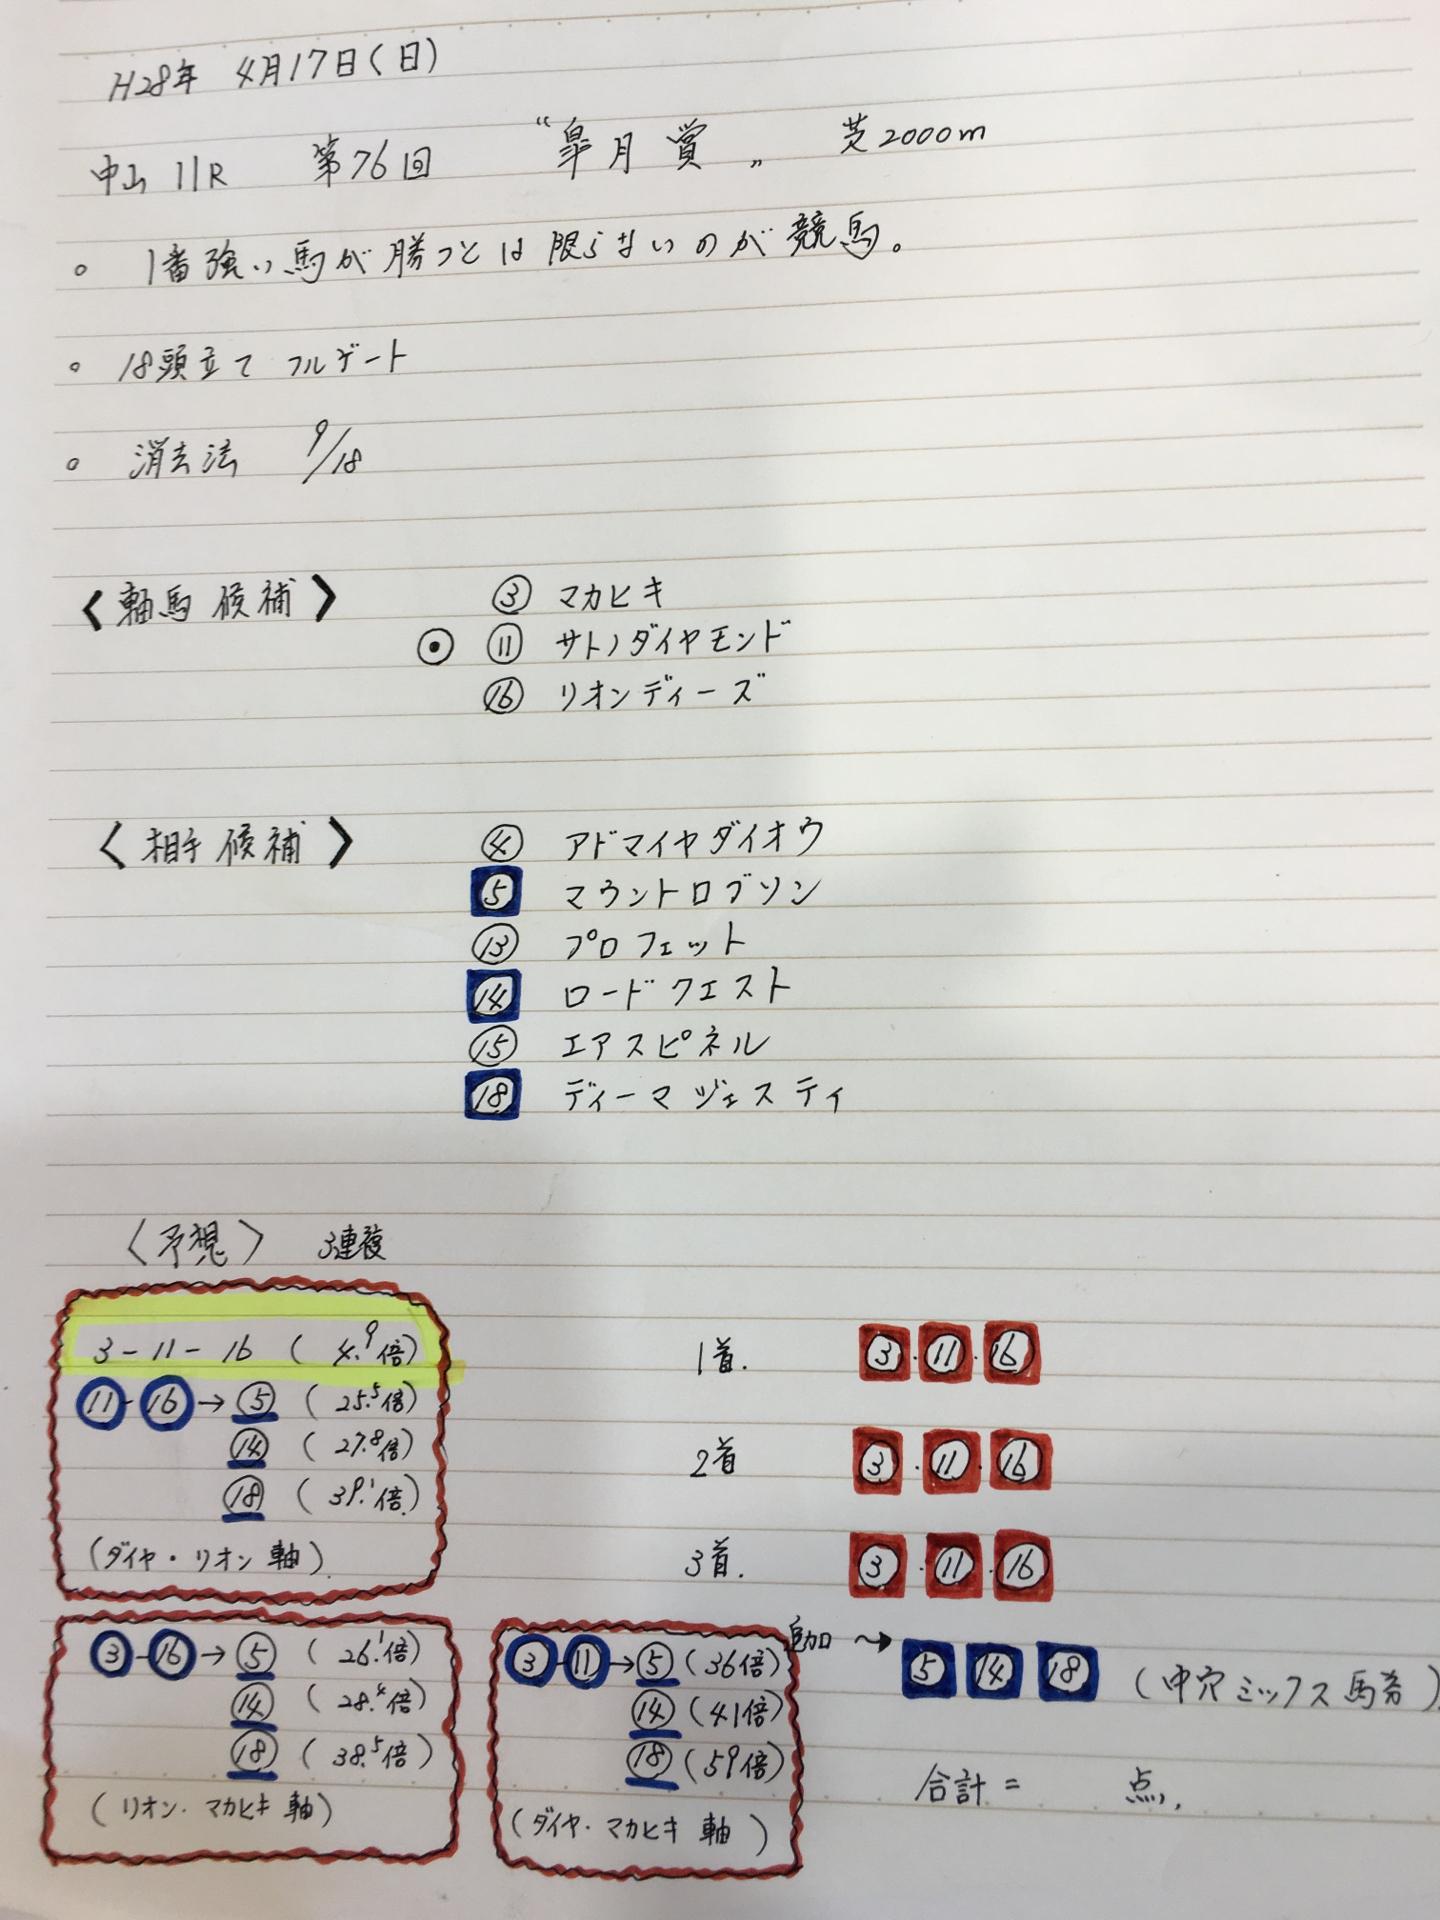 H28年 4月17日(日)
中山 11R 第76回 “皐月賞„ 芝2000m
○ 1番強い馬が勝つとは限らないのが競馬。
○ 18頭立て フルゲート
○ 消去法 9/18
〈軸馬候補〉 ③ マカヒキ
◉ ⑪ サトノダイヤモンド
⑯ リオンディーズ
〈相手候補〉 ④ アドマイヤダイオウ
⑤ マウントロブソン
⑬ プロフェット
⑭ ロードクエスト
⑮ エアスピネル
⑱ ディーマジェスティ
〈予想〉 3連複
3-11-16 (4.9倍)
⑪-⑯→⑤ (25.5倍)
⑭ (27.8倍)
⑱ (39.1倍)
(ダイヤ・リオン軸)
1着. ③・⑪・⑯
2着 ③・⑪・⑯
3着. ③・⑪・⑯
追加 → ⑤ ⑭ ⑱ (中穴ミックス馬券)
③-⑯→⑤ (26.1倍)
⑭ (28.4倍)
⑱ (38.5倍)
(リオン・マカヒキ軸)
③-⑪→⑤ (36倍)
⑭ (41倍)
⑱ (59倍)
(ダイヤ・マカヒキ軸)
合計= 点.